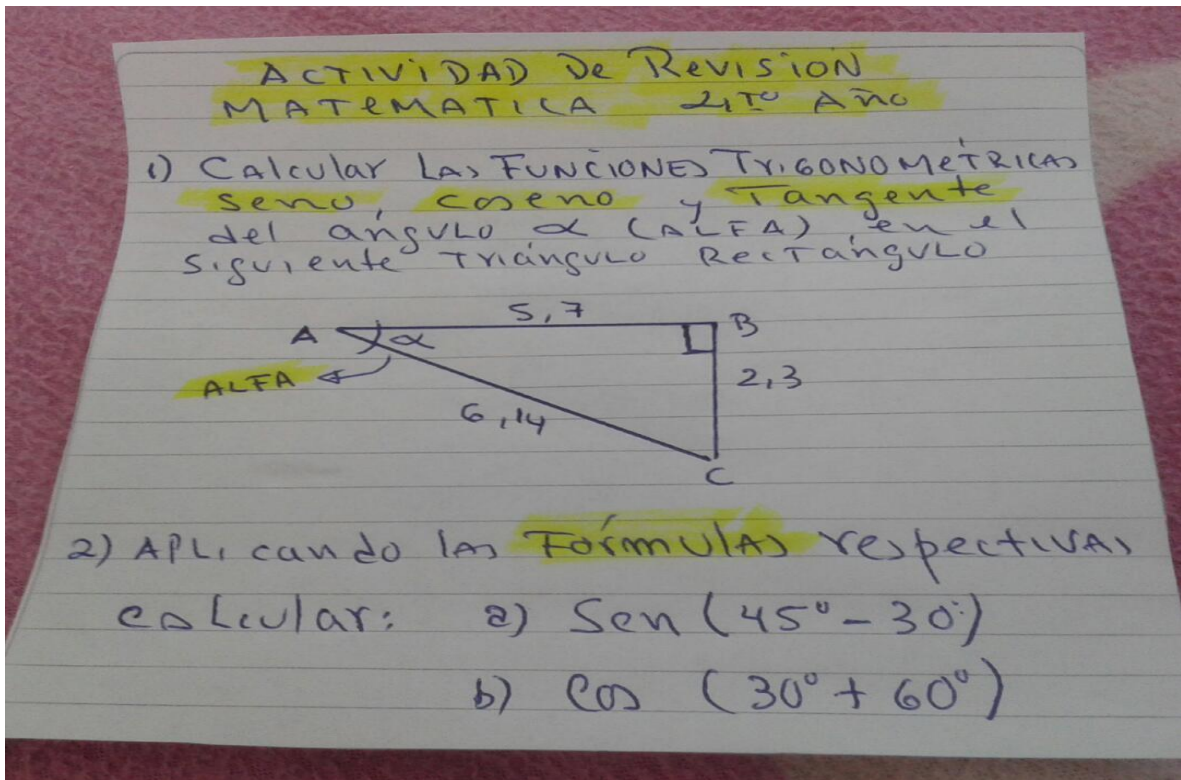 ACTIVIDAD De Revisión
MATEMATICA 4to Año
1) Calcular LAS FUNCIONES TriGONOMéTRICAS
seno, coseno y Tangente
del angulo α (ALFA) en el
siguiente Triángulo RecTángulo
5,7
A α B
ALFA 2,3
6,14
C
2) APLicando las Fórmulas respectivas
calcular: a) Sen (45° - 30°)
b) Cos (30° + 60°)